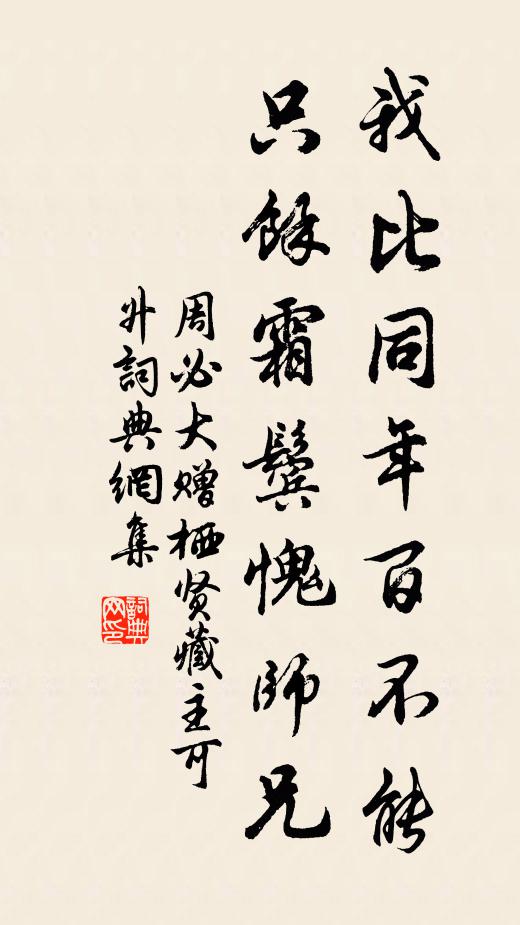 我比同年百不能
只餘霜鬢愧師兄
周必大贈栖賢藏主可
升詞典網集
詞典
网印